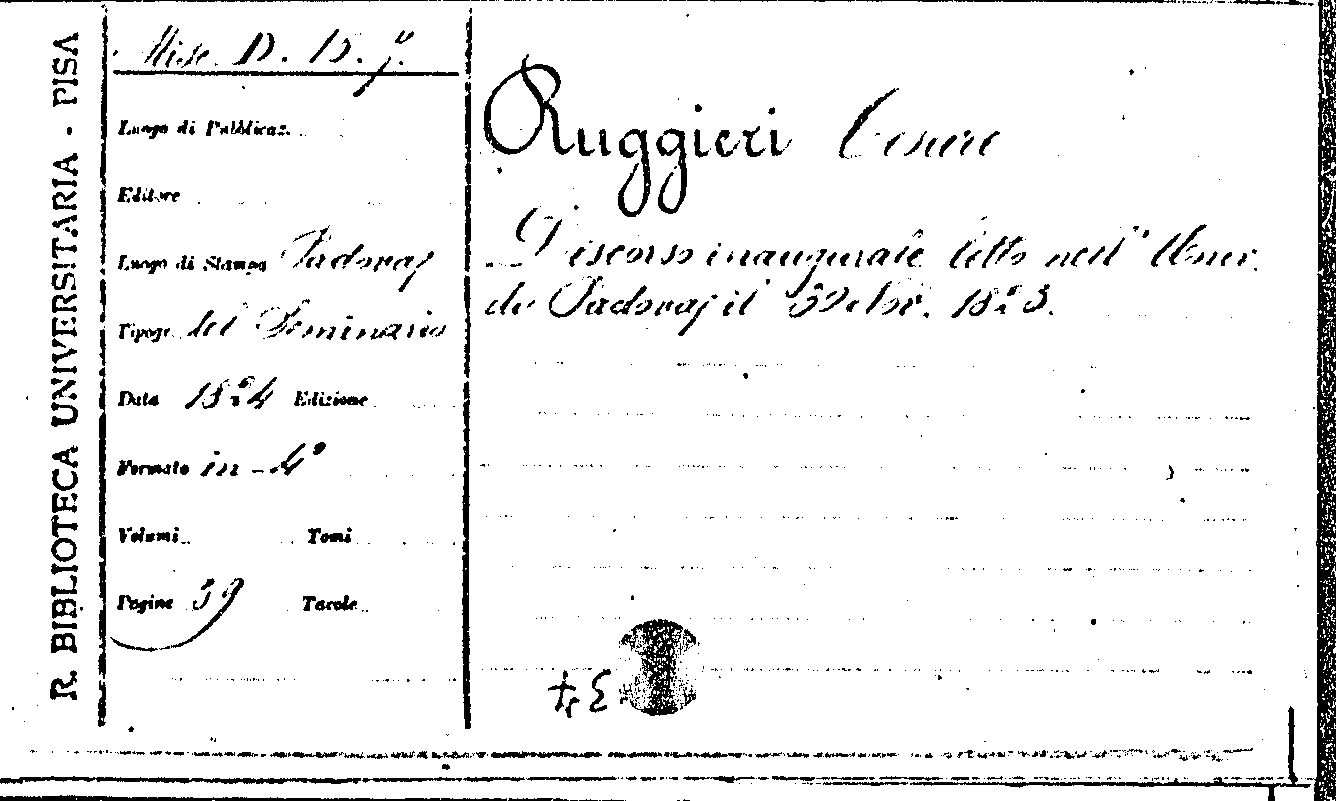 R. BIBLIOTECA UNIVERSITARIA - PISA
Misc. D. 15. 7.
Luogo di Pubblicaz.
Editore
Luogo di Stampa Padova
Tipogr. del Seminario
Data 1824 Edizione
Formato in-4°
Volumi Tomi
Pagine 39 Tavole
Ruggieri Cesare
Discorso inaugurale letto nell' Univ.
di Padova il Nov. 1823.